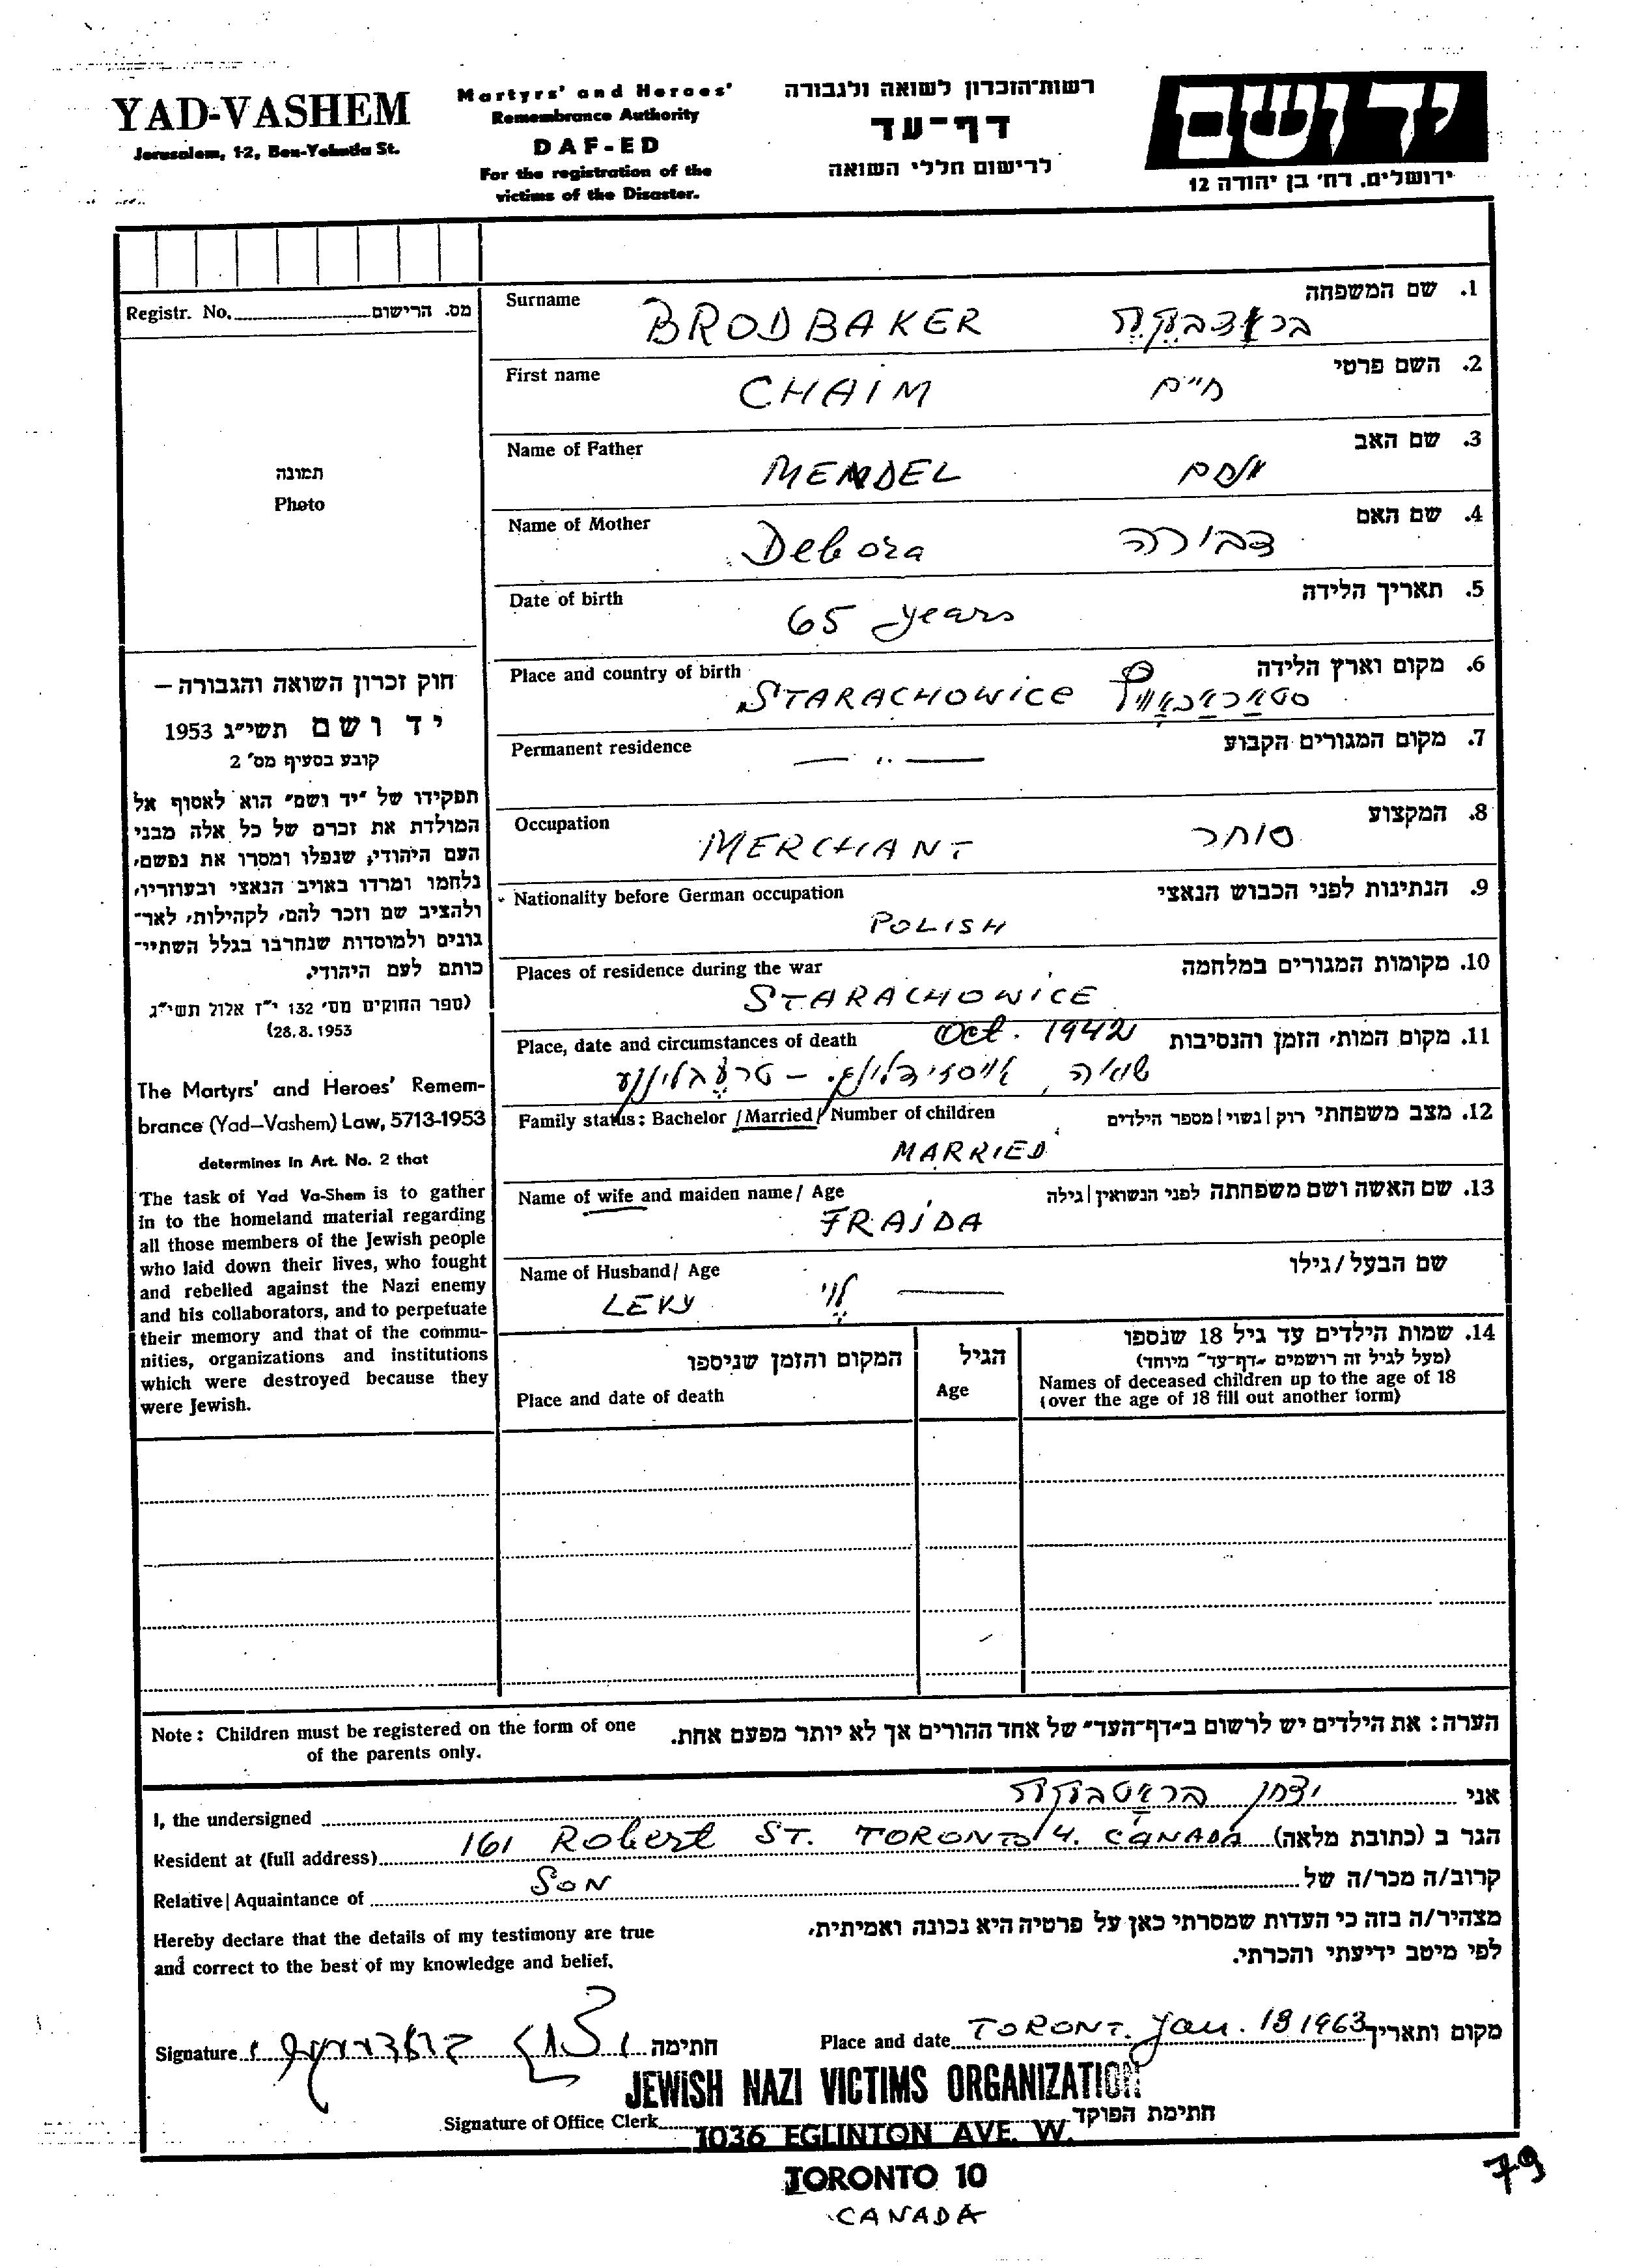 YAD-VASHEM
Jerusalem, 12, Ben-Yehuda St.
Martyrs' and Heroes'
Remembrance Authority
DAF-ED
For the registration of the
victims of the Disaster.
רשות־הזכרון לשואה ולגבורה
דף־עד
לרישום חללי השואה
יד ושם
ירושלים, רח' בן יהודה 12
Registr. No. מס. הרישום
תמונה
Photo
חוק זכרון השואה והגבורה –
יד ושם תשי״ג 1953
קובע בסעיף מס' 2
תפקידו של ״יד ושם״ הוא לאסוף אל
המולדת את זכרם של כל אלה מבני
העם היהודי, שנפלו ומסרו את נפשם,
נלחמו ומרדו באויב הנאצי ובעוזריו,
ולהציב שם וזכר להם, לקהילות, לאר־
גונים ולמוסדות שנחרבו בגלל השתיי־
כותם לעם היהודי.
(ספר החוקים מס' 132 י״ז אלול תשי״ג
(28.8.1953
The Martyrs' and Heroes' Remem-
brance (Yad–Vashem) Law, 5713-1953
determines in Art. No. 2 that
The task of Yad Va-Shem is to gather
in to the homeland material regarding
all those members of the Jewish people
who laid down their lives, who fought
and rebelled against the Nazi enemy
and his collaborators, and to perpetuate
their memory and that of the commu-
nities, organizations and institutions
which were destroyed because they
were Jewish.
Surname 1. שם המשפחה
BRODBAKER
First name 2. השם פרטי
CHAIM חיים
Name of Father 3. שם האב
MENDEL
Name of Mother 4. שם האם
Debora דבורה
Date of birth 5. תאריך הלידה
65 years
Place and country of birth 6. מקום וארץ הלידה
STARACHOWICE
Permanent residence 7. מקום המגורים הקבוע
— ״ —
Occupation 8. המקצוע
MERCHANT סוחר
Nationality before German occupation 9. הנתינות לפני הכבוש הנאצי
POLISH
Places of residence during the war 10. מקומות המגורים במלחמה
STARACHOWICE
Place, date and circumstances of death Oct. 1942 11. מקום המות, הזמן והנסיבות
שואה, אויסזידלונג – טרעבלינקע
Family status: Bachelor /Married/ Number of children 12. מצב משפחתי רוק|נשוי|מספר הילדים
MARRIED
Name of wife and maiden name/ Age 13. שם האשה ושם משפחתה לפני הנשואין|גילה
FRAJDA
Name of Husband/ Age שם הבעל/גילו
LEVY לוי —
14. שמות הילדים עד גיל 18 שנספו
(מעל לגיל זה רושמים ״דף־עד״ מיוחד)
Names of deceased children up to the age of 18
(over the age of 18 fill out another form)
הגיל
Age
המקום והזמן שניספו
Place and date of death
Note: Children must be registered on the form of one
of the parents only.
הערה: את הילדים יש לרשום ב״דף־העד״ של אחד ההורים אך לא יותר מפעם אחת.
I, the undersigned אני
Resident at (full address) 161 Robert ST. TORONTO 4. CANADA הגר ב (כתובת מלאה)
Relative|Aquaintance of SON קרוב/ה מכר/ה של
Hereby declare that the details of my testimony are true
and correct to the best of my knowledge and belief.
מצהיר/ה בזה כי העדות שמסרתי כאן על פרטיה היא נכונה ואמיתית,
לפי מיטב ידיעתי והכרתי.
Signature חתימה
Place and date TORONT. Jan. 18 1963 מקום ותאריך
JEWISH NAZI VICTIMS ORGANIZATION
Signature of Office Clerk חתימת הפוקד
1036 EGLINTON AVE. W.
TORONTO 10
CANADA
79